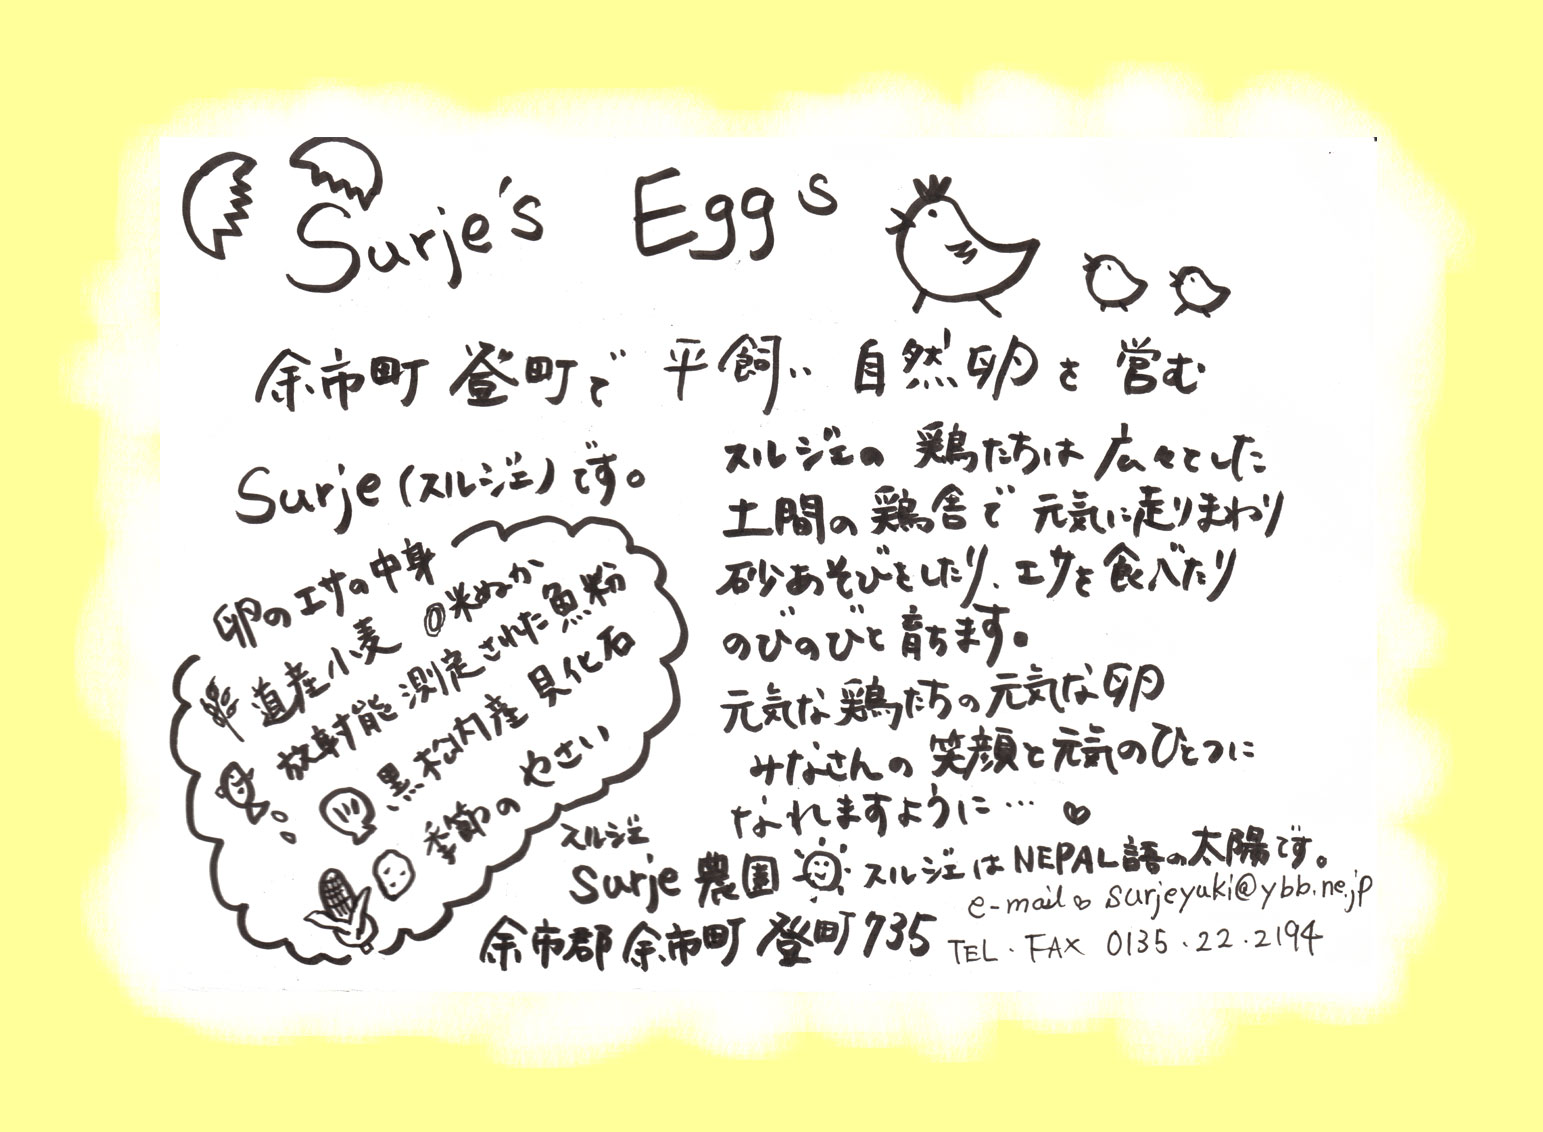 Surje's Eggs
余市町 登町で 平飼い 自然卵を 営む
Surje (スルジェ) です。
卵のエサの中身
道産小麦 ◎米ぬか
放射能測定された魚粉
黒松内産 貝化石
季節の やさい
スルジェの 鶏たちは 広々とした
土間の 鶏舎で 元気に走りまわり
砂あそびをしたり、エサを食べたり
のびのびと育ちます。
元気な鶏たちの元気な卵
みなさんの笑顔と元気のひとつに
なれますように… ♡
スルジェ
Surje 農園 スルジェはNEPAL語の太陽です。
e-mail♡ surjeyuki@ybb.ne.jp
余市郡 余市町 登町735
TEL・FAX 0135.22.2194